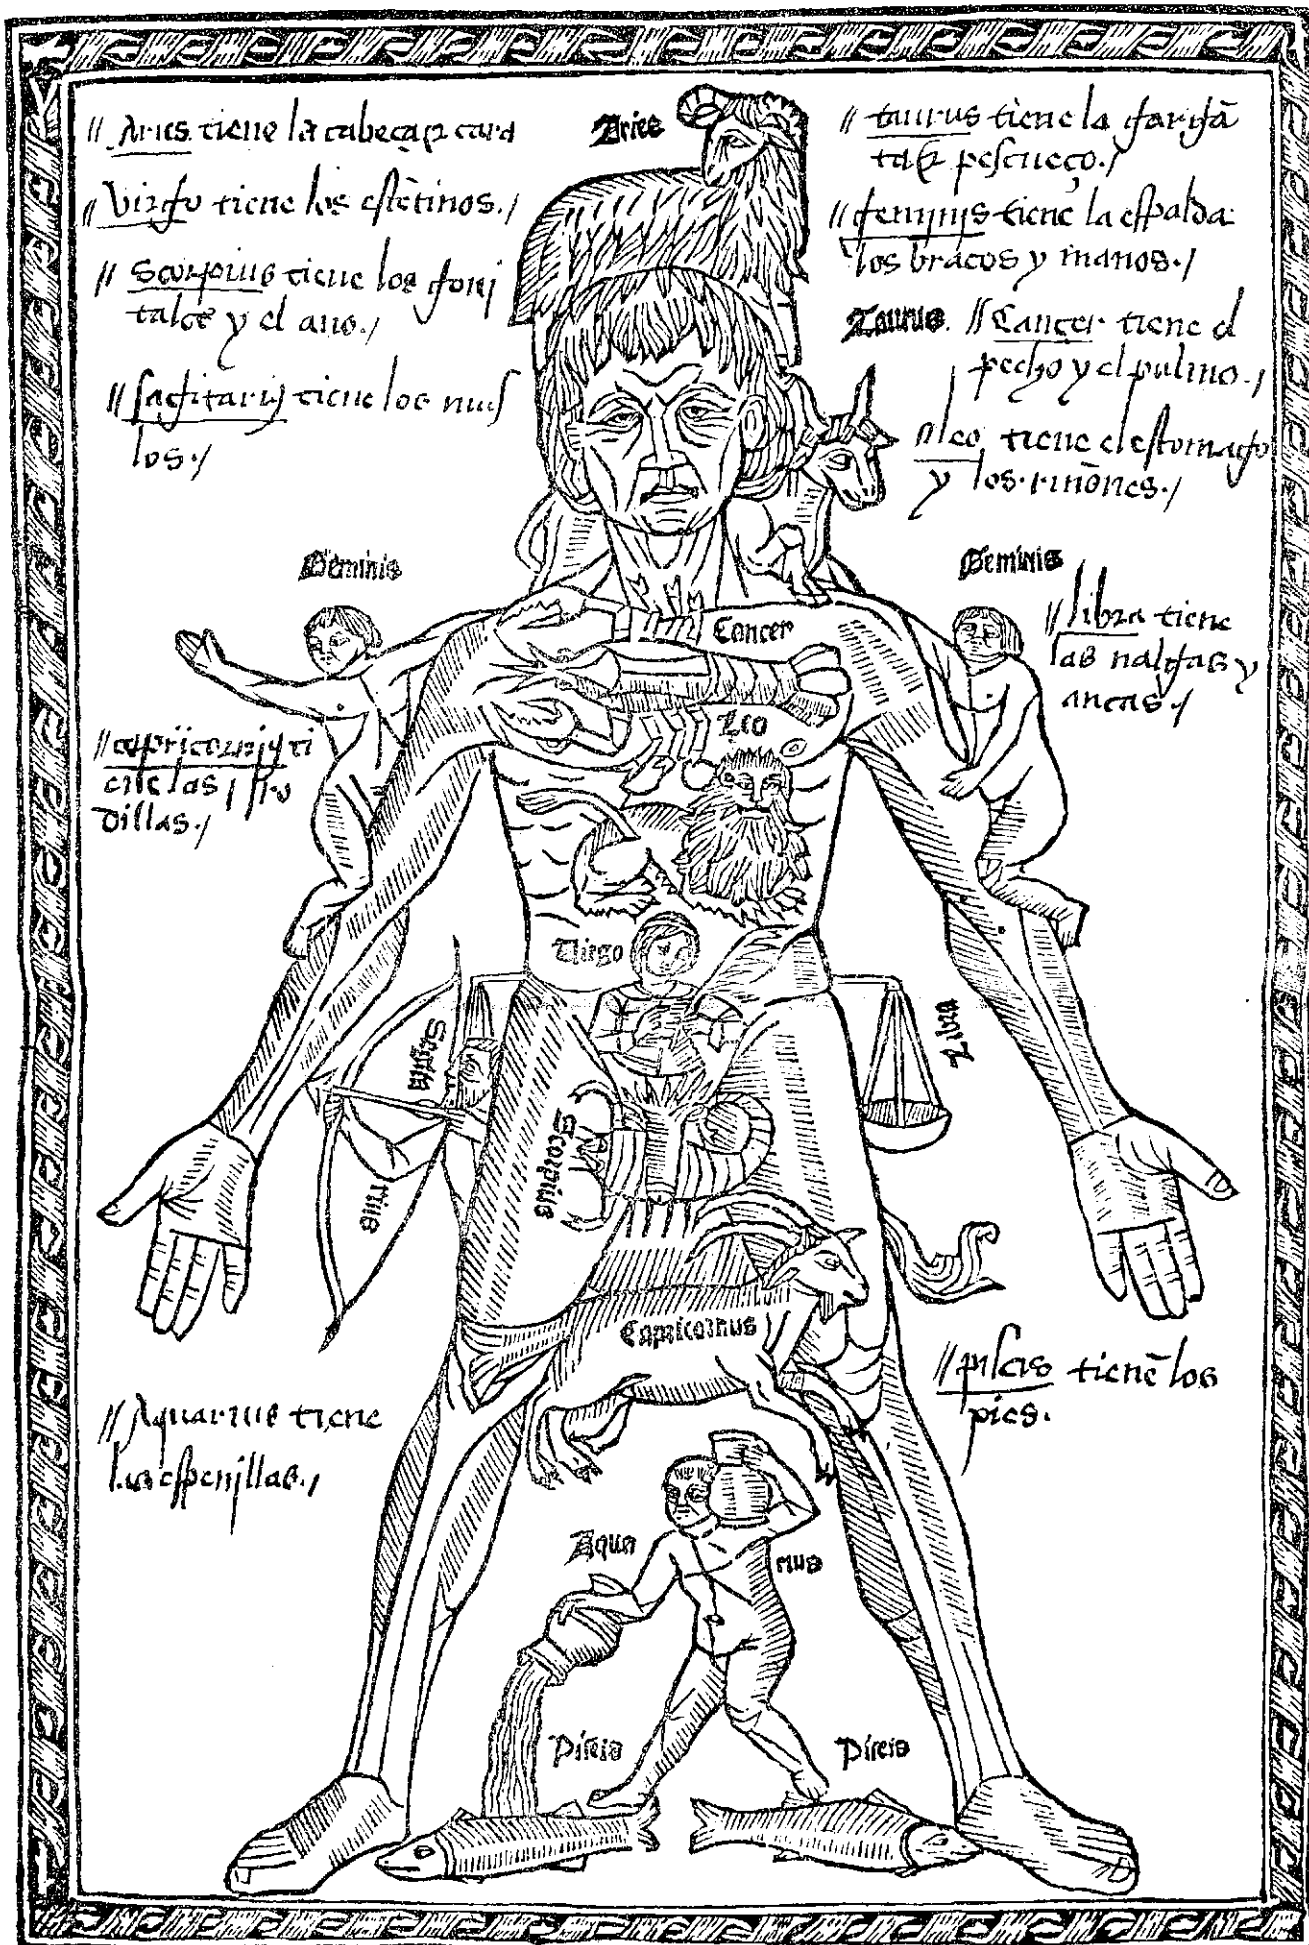 // Aries tiene la cabeça y cara
// Virgo tiene los estētinos./
// Scorpius tiene los geni
tales y el ano./
// sagitarij tiene los mus
los./
Aries
// taurus tiene la gargā
ta & pescueço./
// geminjs tiene la espalda
los braços y manos./
Taurus.
// Cancer tiene el
pecho y el pulmo./
leo tiene el estomago
y los riñōnes./
Geminis
Geminis
// libra tiene
las nalgas y
ancas./
Cancer
Leo
// caprjcornjy ti
ene las
dillas./
Virgo
Sagita
rius
Libra
Scorpius
Capricornus
// piscis tienē los
pies.
// Aquarius tiene
las espenjllas./
Aqua
rius
Piscis
Piscis